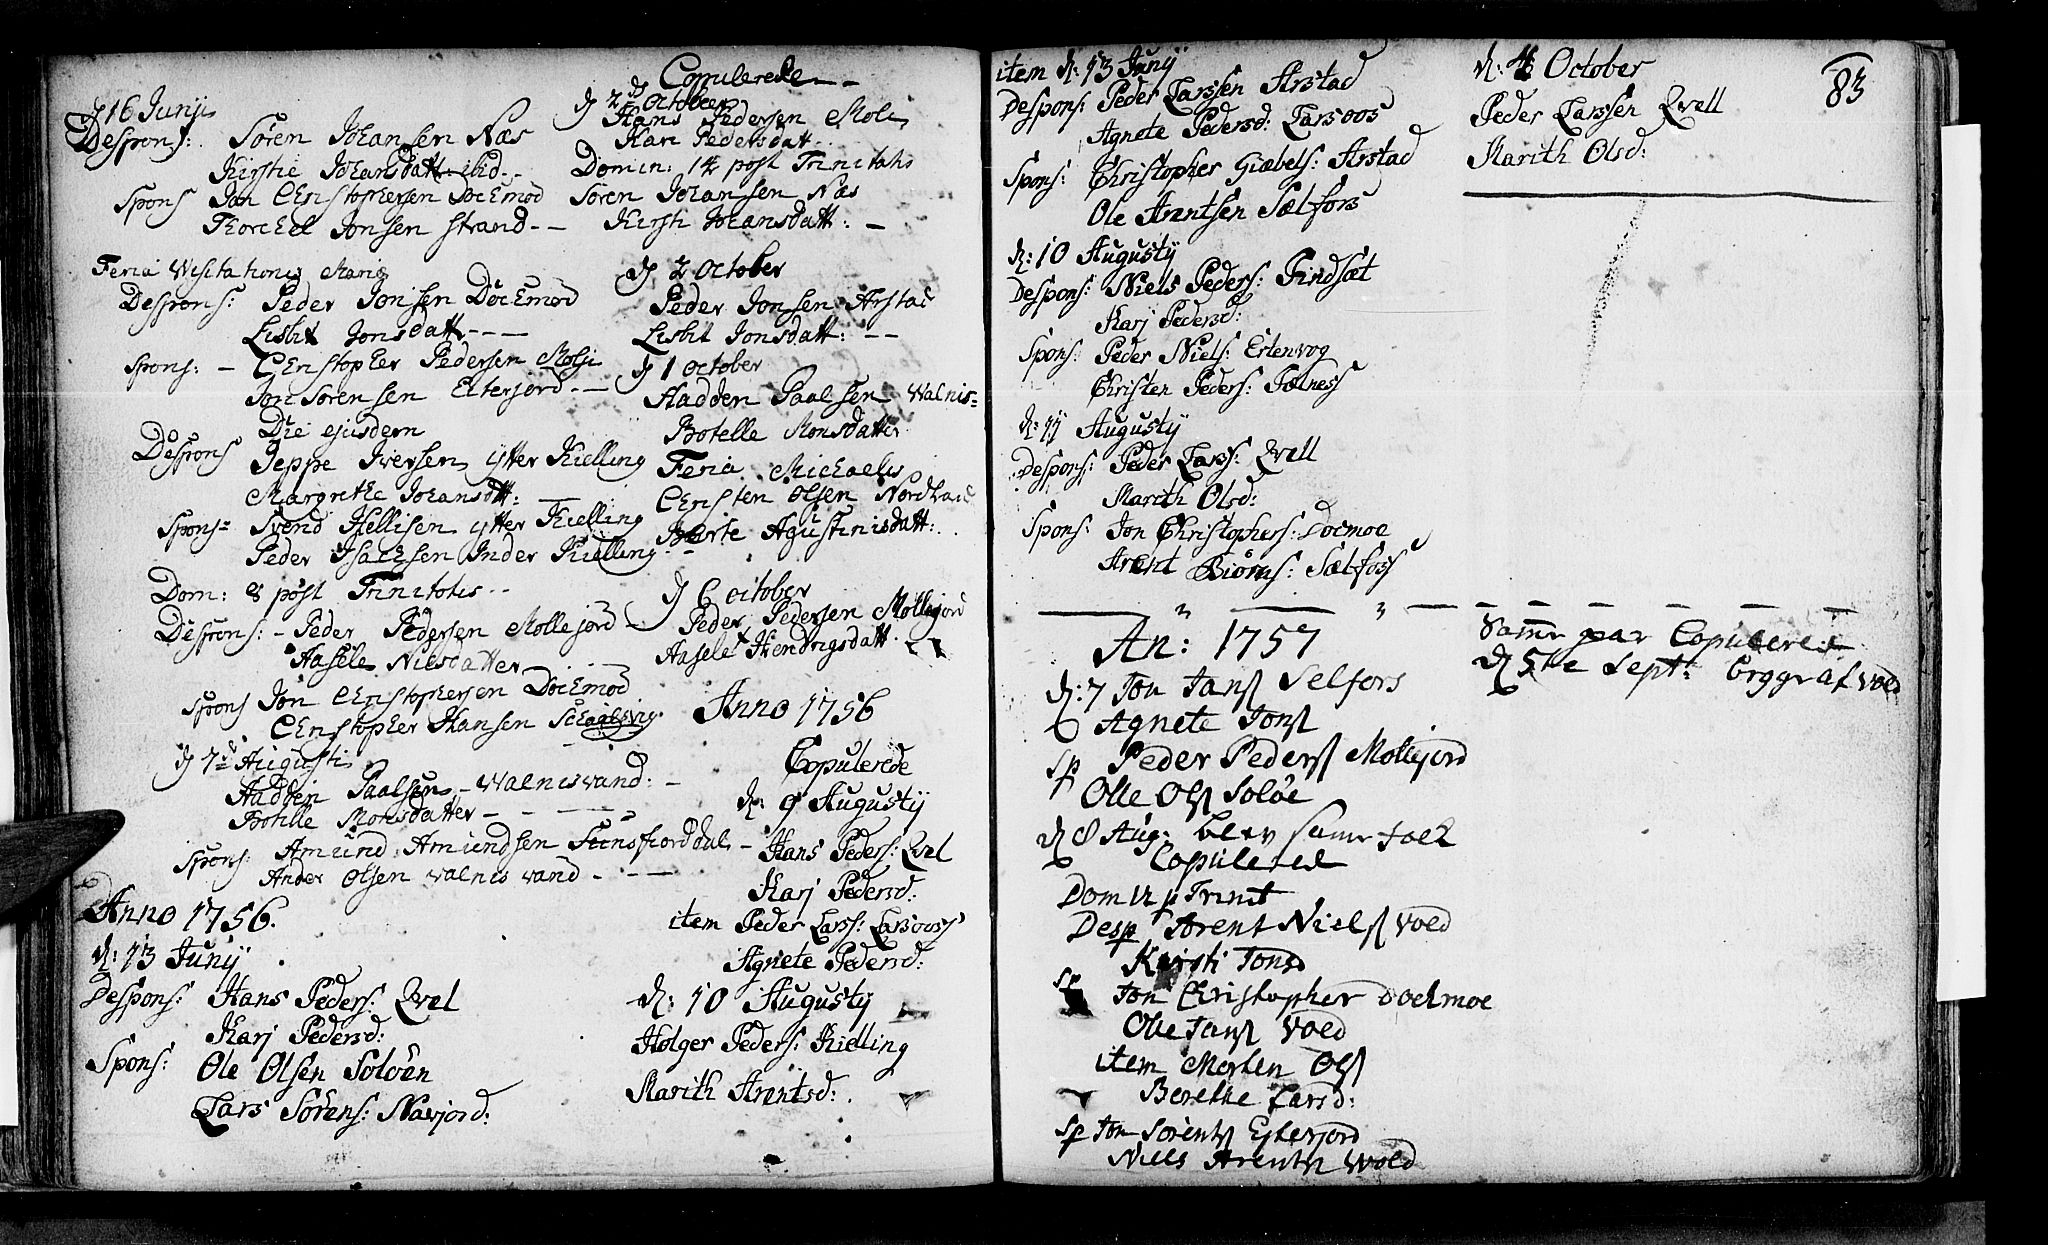 d 16 Junij
Despons: Søren Johansen Næs
Kirstie Johansdatt ibid.
Spons Jon Christophersen Docmod
Thorchel Jonsen Strand
Feria Visitationis Mariæ
Despons: Peder Jonsen Docmod
Lisbit Jonsdatt
Spons: Christopher Pedersen Moli
Jon Sørensen Elterfjord
Die ejusdem
Despons Jeppe Iversen ytter Kielling
Margrethe Johansdtt:
Spons Svend Hellisen ytter Kielling
Peder Isachsen Inder Kielling
Dom: 8 post Trinitatis
Despons: Peder Pedersen Mollejord
Aasele Nilsdatter
Spons Jon Christophersen Docmod
Christopher Hansen
d 7de Augusti
Hadden Paalsen Valnisvand:
Botille Monsdatter
Spons: Amund Amundsen
Ander Olsen Valnisvand
Anno 1756.
d: 13 Junij
Despons: Hans Peders: Qvel
Karj Pedersd:
Spons: Ole Olsen Soløen
Lars Sørens: Navjord:
Copulerede
d 2d October
Hans Pedersen Moli
Kari Pedersdatt
Domin: 14 post Trinitatis
Søren Johansen Næs
Kirsti Johansdatt:
d 2 October
Peder Jonsen Arstad
Lisbit Jonsdatt:
d 1 October
Hadden Paalsen Valnis=
Botelle Monsdatter
Feria Michaelis
Christen Olsen Nordland
Marte Agustinisdatt:
d 6 October
Peder Pedersen Mollejord
Aasele Hendrigsdatt
Anno 1756
Copulerede
d: 9 Augustij
Hans Peders: Qvel
Karj Pedersd:
item Peder Lars: Larsoos
Agnete Pedersd:
d: 10 Augustij
Holger Peders: Kielling
Marith Arentsd:
item d: 13 Junij
Despons: Peder Larssen Arstad
Agnete Pedersd: Larsoos
Spons: Christopher Giæbels: Arstad
Ole Arentsen Sælfors
d: 10 Augustij
Despons: Niels Peders: Findsæt
Karj Pedersd:
Spons: Peder Niels: Ertenvog
Christen Peders:
d: 11 Augustij
Despons: Peder Lars: Qvell
Marith Olsd:
Spons: Jon Christophers: Docmoe
Arent Biörns: Sælfors
An: 1757
d: 7 Jon Jans Selfors
Agnete Jons
Sp Peder Peders Mollejord
Olle Ols Soløe
d 8 Aug: blev samme Folk
Copulered
Dom 12 p Trinit
Desp Arent Niels Vold
Kirsti Jonsd
Sp Jon Christopher Docmoe
Olle Jans Vold
item Morten Ols
Berethe Larsd:
Sp Jon Sørens Esterjord
Niels Arents Wold
d: 4 October
Peder Larssen Qvell
Marith Olsd:
83
Samme par Copulered
d 5te Sept: